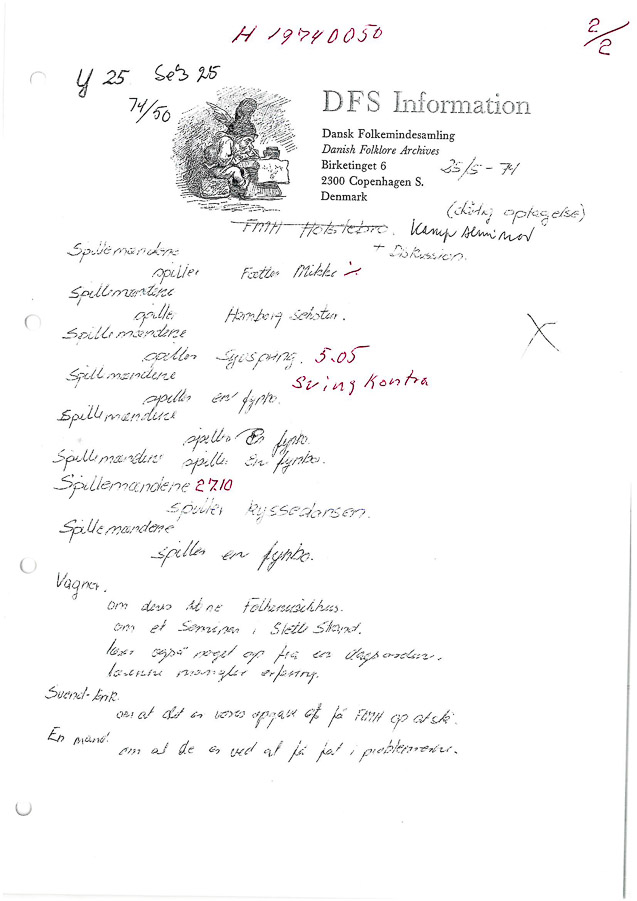 H 19740050
2/2
Y 25 Se's 25
74/50
DFS Information
Dansk Folkemindesamling
Danish Folklore Archives
Birketinget 6
2300 Copenhagen S.
Denmark
25/5 - 74
(dårlig optagelse)
FMH Holstebro. Kamp
+ Diskussion.
Spillemændene
spiller Fætter Mikkel
Spillemændene
spiller Hamborg schottis.
Spillemændene
spiller Syvspring. 5.05
Spillemændene Sving Kontra
spiller en fynbo.
Spillemændene
spiller en fynbo.
Spillemændene spiller en fynbo.
Spillemændene 27.10
spiller Kyssedansen.
Spillemændene
spiller en fynbo.
Vagner.
om deres Folkemusikhus.
om et Seminar i Slette Strand.
læser også noget op fra en dagsorden.
mangler erfaring.
Svend-Erik.
om at det er vores opgave at få FMH op at stå.
En mand.
om at de er ved at få fat i problemerne.